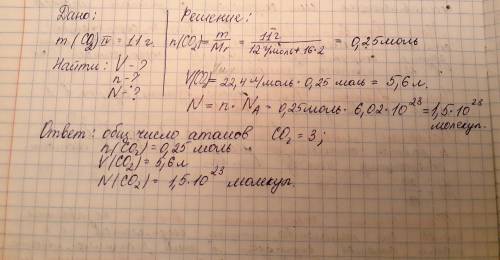 Дано: Решение:
m(CO₂) IV = 11 г. n(CO₂) = m/Mr = 11 г/12 г/моль + 16·2 = 0,25 моль
Найти: V - ?
n - ?
N - ?
V(CO₂) = 22,4 л/моль · 0,25 моль = 5,6 л.
N = n · NA = 0,25 моль · 6,02 · 10²³ = 1,5 · 10²³
молекул.
Ответ: общ. число атомов CO₂ = 3;
n(CO₂) = 0,25 моль
V(CO₂) = 5,6 л
N(CO₂) = 1,5 · 10²³ молекул.